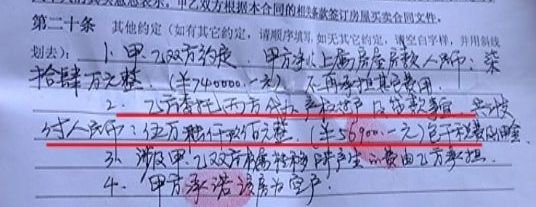 意思表示，甲乙双方根据本合同的相关条款签订房屋买卖合同文件。
第二十条 其他约定（如有其它约定，请顺序填写，如无其它约定，请空白字样，并用斜
划去）：1.甲、乙双方约定，甲方净收上属房屋房款人民币：柒
拾肆万元整（￥740000.一元）不再承担其它费用
2、乙方委托丙方代办产权过户及贷款事宜，
付人民币：伍万陆仟玖佰元整（￥56900.一元）
3、涉及甲、乙双方 所产生 费由乙方承担.
4、甲方承诺该房为空户.